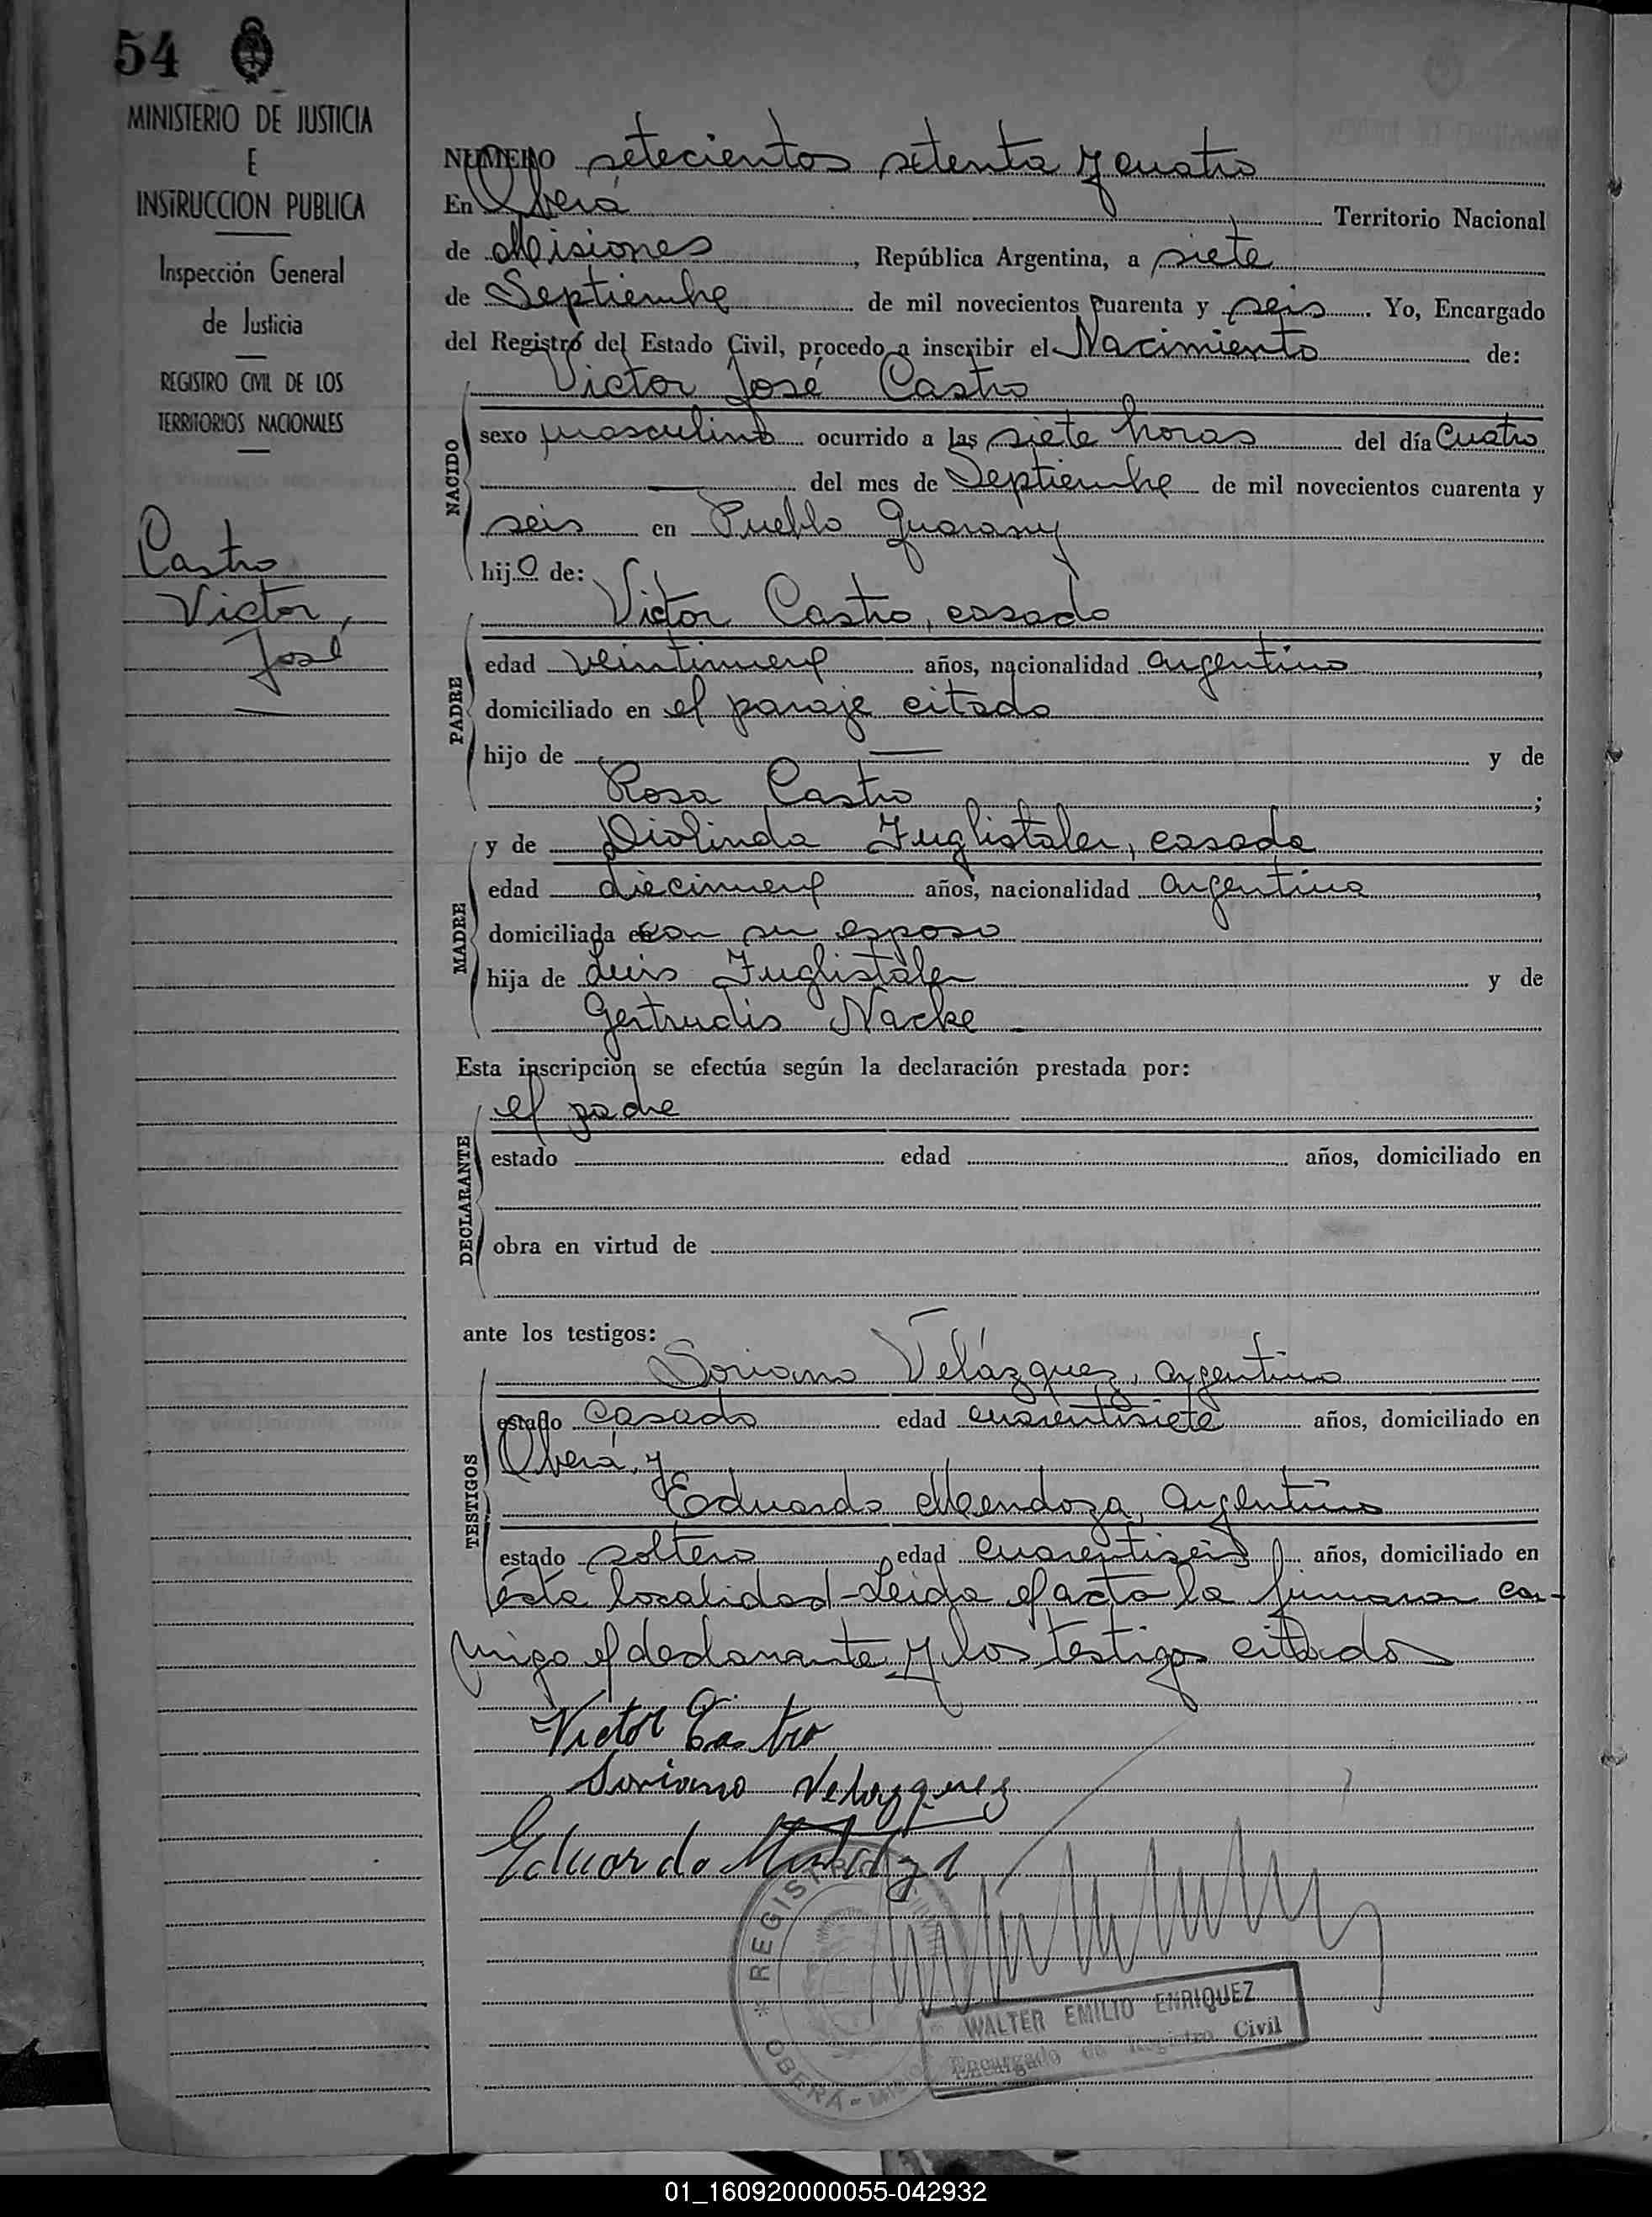 54
MINISTERIO DE JUSTICIA
E
INSTRUCCION PUBLICA
Inspección General
de Justicia
REGISTRO CIVIL DE LOS
TERRITORIOS NACIONALES
Castro
Victor,
José
NUMERO setecientos setenta y cuatro
En Oberá Territorio Nacional
de Misiones, República Argentina, a siete
de Septiembre de mil novecientos cuarenta y seis. Yo, Encargado
del Registro del Estado Civil, procedo a inscribir el Nacimiento de:
Victor José Castro
NACIDO
sexo masculino ocurrido a las siete horas del día Cuatro
del mes de Septiembre de mil novecientos cuarenta y
seis en Pueblo Guarany
hijo de:
Victor Castro, casado
PADRE
edad veintinueve años, nacionalidad argentino,
domiciliado en el paraje citado
hijo de — y de
Rosa Castro;
y de Diolinda Fuglistaler, casada
MADRE
edad diecinueve años, nacionalidad argentina,
domiciliada con su esposo
hija de Luis Fuglistaler y de
Gertrudis Nacke
Esta inscripción se efectúa según la declaración prestada por:
el padre
DECLARANTE
estado edad años, domiciliado en
obra en virtud de
ante los testigos:
Soriano Velázquez, argentino
TESTIGOS
estado casado edad cuarentisiete años, domiciliado en
Oberá, y
Eduardo Mendoza, argentino
estado soltero edad cuarentiseis años, domiciliado en
ésta localidad - Leida el acta la firmaron con-
migo el declarante y los testigos citados
Victor Castro
Soriano Velazquez
Eduardo Mendoza
REGISTRO
OBERÁ -
WALTER EMILIO ENRIQUEZ
Encargado de Registro Civil
01_160920000055-042932